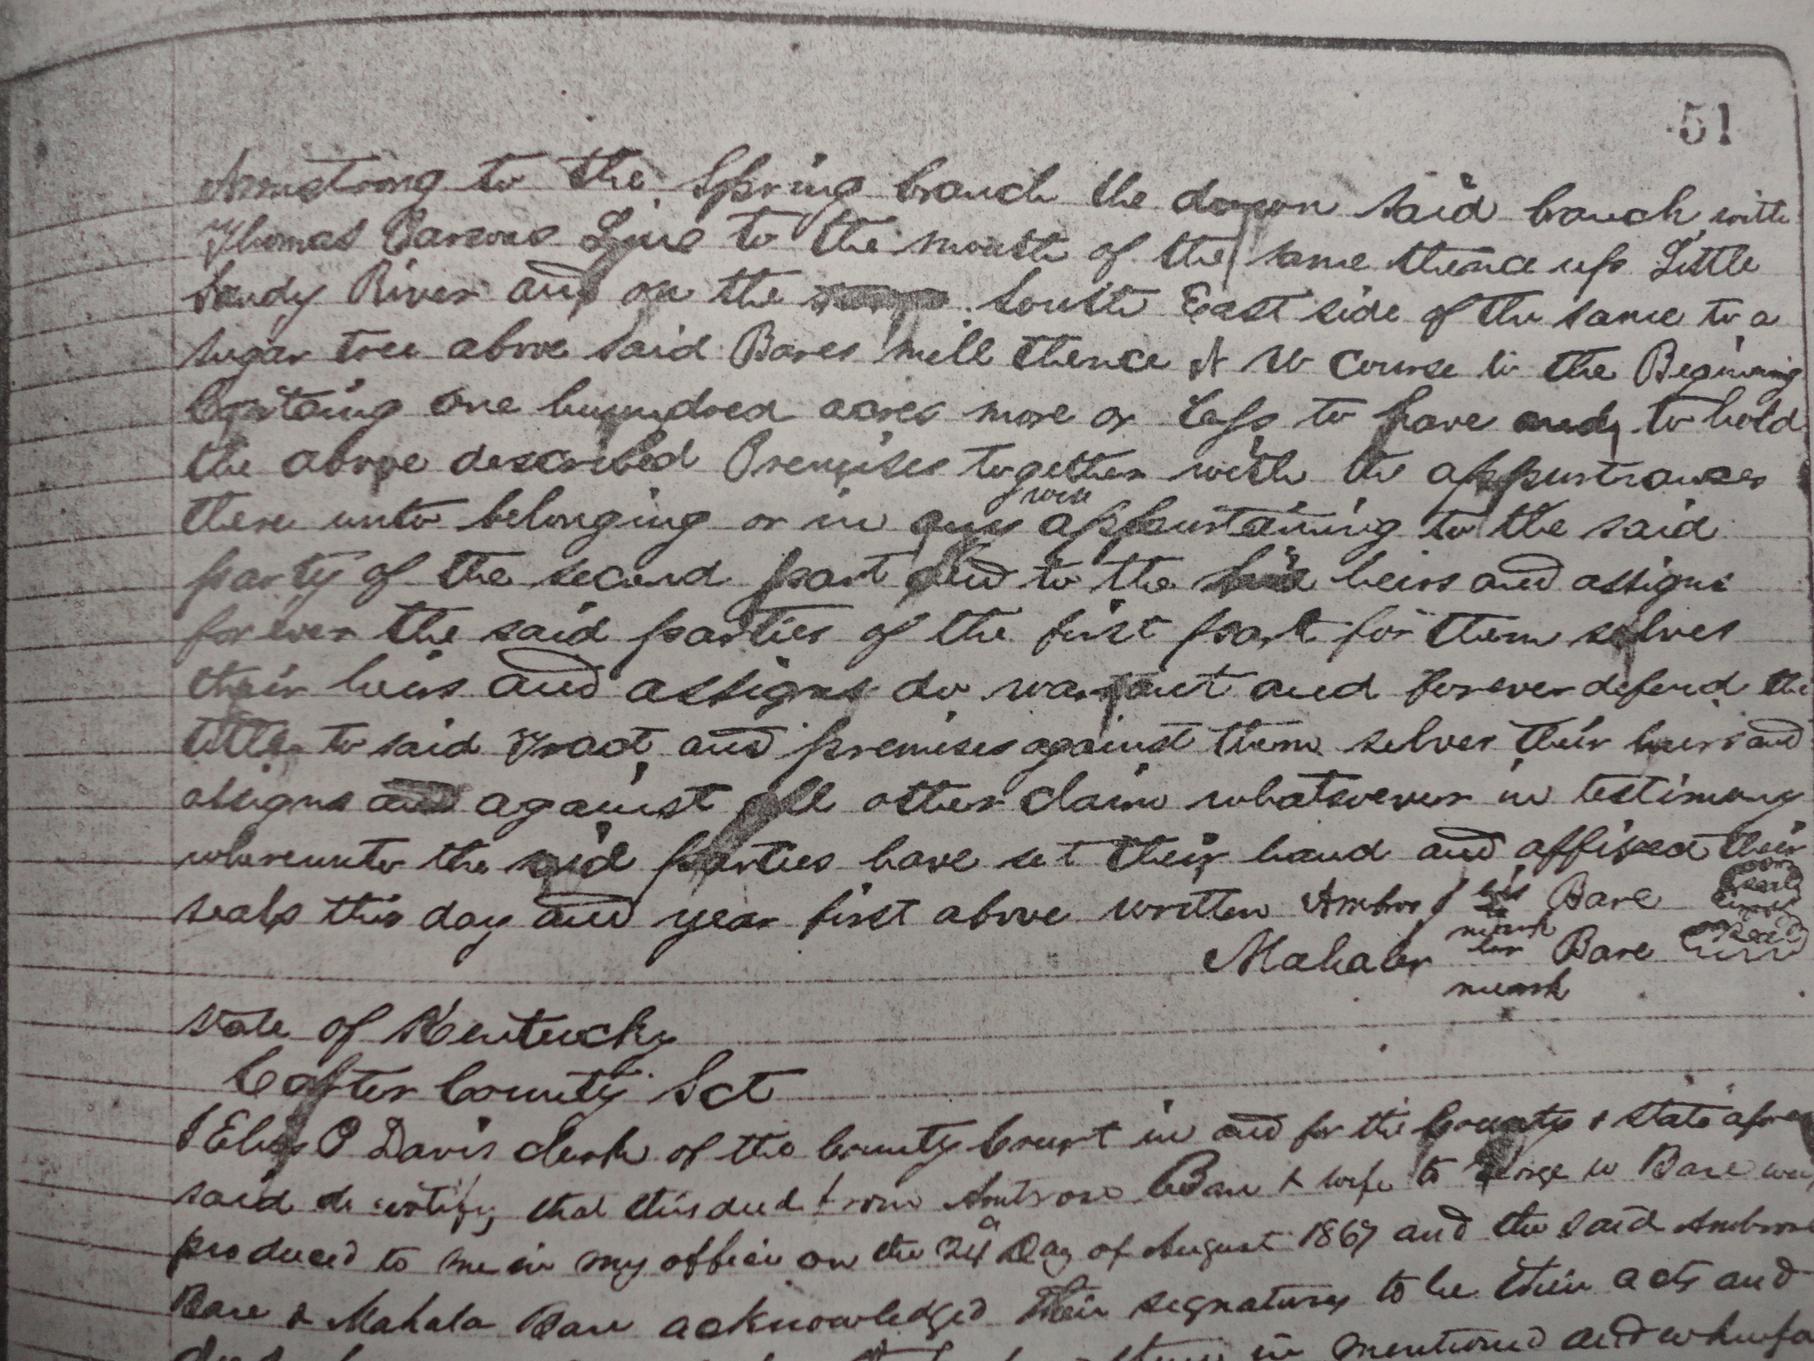 51
Armstrong to the Spring branch the down said branch with
Thomas Parsons Line to the mouth of the same thence up Little
Sandy River and on the South East side of the same to a
sugar tree above said Bares mill thence N W course to the Begining
Containg one hunndred acres more or Less to have and to hold
the above described Premises together with the appurtrances
there unto belonging or in any wise appurtaining to the said
party of the second part and to the his heirs and assigns
for ever the said parties of the first part for them selves
their heirs and assigns do warrant and forever defend the
title to said Tract and premises against them selves their heirs and
assigns and against all other claim whatsoever in testimony
whereunto the said parties have set their hand and affixed their
seals this day and year first above written Ambros his mark Bare Seal
Mahaler her mark Bare Seal
State of Kentucky
Carter County Sct
I Elias P Davis clerk of the County Court in and for the County & State afore
said do certify that this deed from Ambrose Bare & wife to George W Bare was
produced to me in my office on the 24 Day of August 1867 and the said Ambrose
Bare & Mahala Bare acknowledged their signatures to be their acts and
in mentioned and